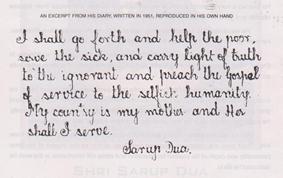 AN EXCERPT FROM HIS DIARY, WRITTEN IN 1951, REPRODUCED IN HIS OWN HAND
I shall go forth and help the poor,
serve the sick, and carry light of truth
to the ignorant and preach the gospel
of service to the selfish humanity.
My country is my mother and Her
shall I serve.
Sarup Dua.
SHRI SARUP DUA